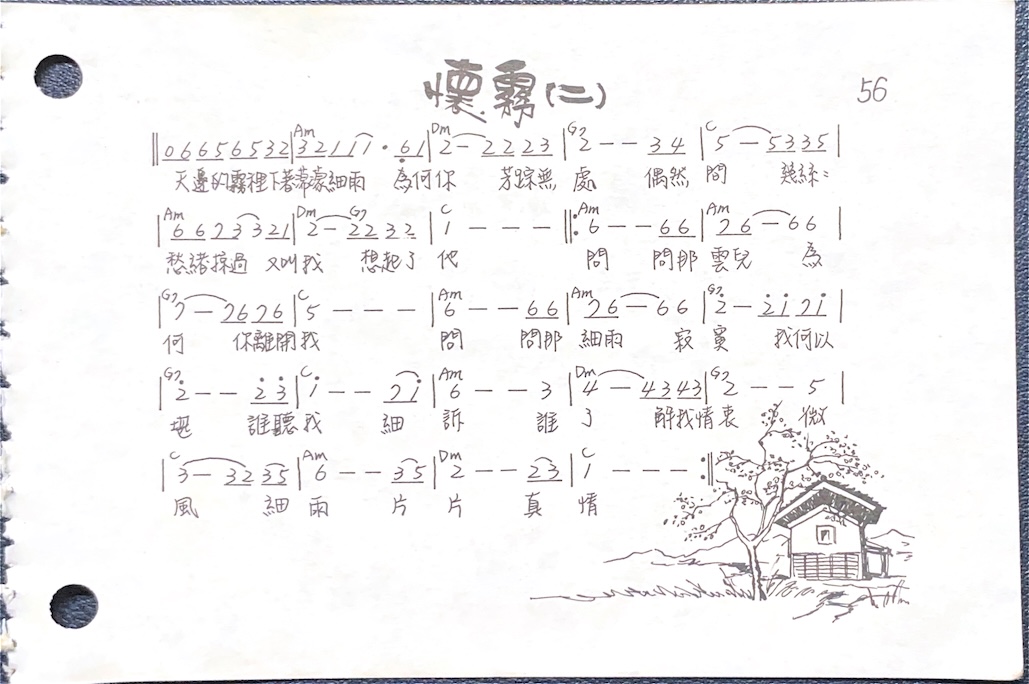 懷霧(二)
56
Am Dm G7 C
‖06656532|32111·61|2-2223|2--34|5-5335|
天邊的霧裡下著常濛細雨 為何你 芳踪無處 偶然問 幾綠〻
Am Dm G7 C Am Am
|66733321|2-2232|1---‖:6--66|76-66|
愁緒掠過 又叫我 想起了他 問 問那雲兒 為
G7 C Am Am G7
|7-7676|5---|6--66|76-66|2-2171|
何 你離開我 問 問那細雨 寂寞 我何以
G7 C Am Dm G7
|2--23|1--71|6--3|4-4343|2--5|
堪 誰聽我 細訴 誰了 解我情衷 微
C Am Dm C
|3-3235|6--35|2--23|1---:‖
風 細雨 片片 真情